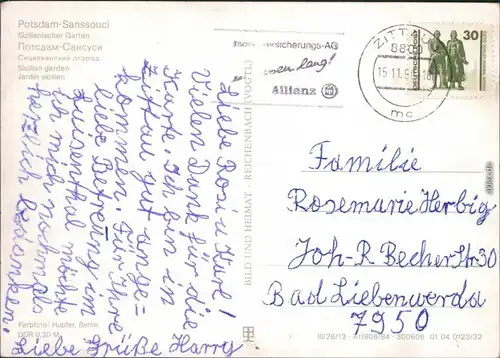 Potsdam-Sanssouci
Sizilianischer Garten
Потсдам-Сансуси
Сицилианский огород
Sicilian garden
Jardin sicilien
Liebe Rosi u. Karl!
Vielen Dank für die
Karte. Ich bin in
Zittau gut ange-
kommen. Für Ihre
liebe Betreuung im
möchte
ich mich nochmals
herzlich bedanken.
Liebe Grüße Harry
Farbfoto: Hupfer, Berlin
DDR 0,20 M
BILD UND HEIMAT · REICHENBACH (VOGTL)
versicherungs-AG
lang!
Allianz
ZITTAU
8800
15.11.90
mc
30
Familie
Rosemarie Herbig
Joh-R Becher Str 30
Bad Liebenwerda
7950
III/26/13 · A1/608/84 · 300606 01 04 0123/32